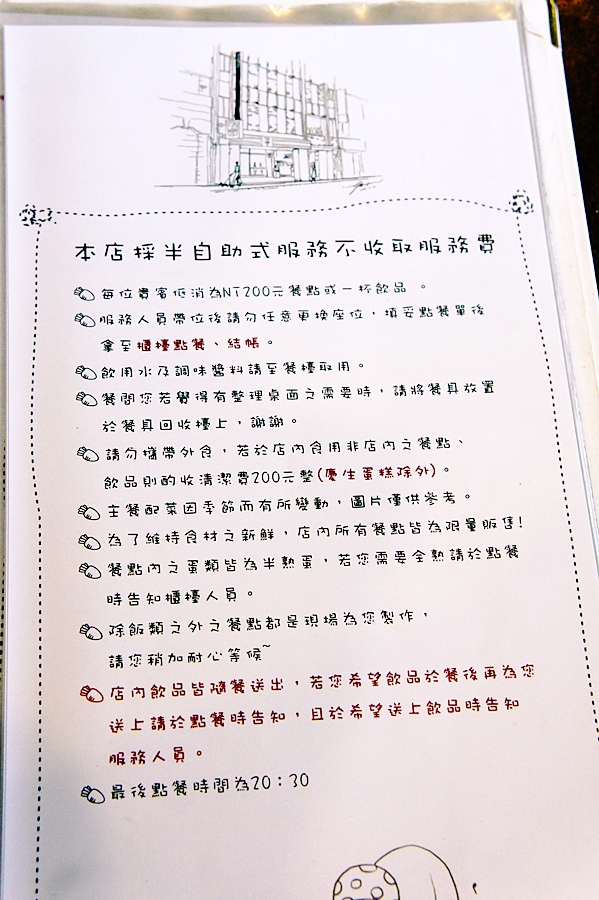 本店採半自助式服務不收取服務費
每位貴賓低消為NT200元餐點或一杯飲品 。
服務人員帶位後請勿任意更換座位，填妥點餐單後
拿至櫃檯點餐、結帳。
飲用水及調味醬料請至餐檯取用。
餐間您若覺得有整理桌面之需要時，請將餐具放置
於餐具回收檯上，謝謝。
請勿攜帶外食，若於店內食用非店內之餐點、
飲品則酌收清潔費200元整(慶生蛋糕除外)。
主餐配菜因季節而有所變動，圖片僅供參考。
為了維持食材之新鮮，店內所有餐點皆為限量販售!
餐點內之蛋類皆為半熟蛋，若您需要全熟請於點餐
時告知櫃檯人員。
除飯類之外之餐點都是現場為您製作，
請您稍加耐心等候~
店內飲品皆隨餐送出，若您希望飲品於餐後再為您
送上請於點餐時告知，且於希望送上飲品時告知
服務人員。
最後點餐時間為20：30